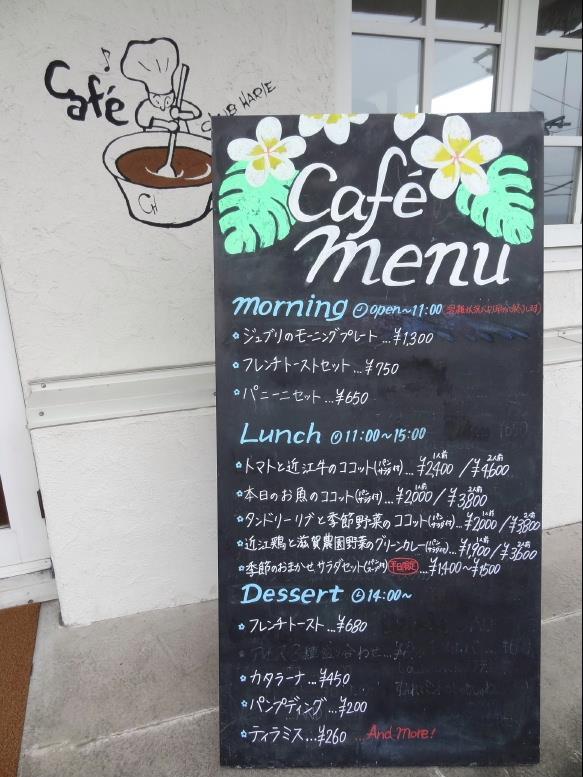 Café
CLUB HARIE
CH
Café
menu
morning open~11:00
ジュブリのモーニングプレート...¥1,300
フレンチトーストセット...¥750
パニーニセット...¥650
Lunch 11:00~15:00
トマトと近江牛のココット(パン サラダ付)...1人前¥2,400/2人前¥4,600
本日のお魚のココット(パン サラダ付)...1人前¥2,000/2人前¥3,800
タンドリーリブと季節野菜のココット(パン サラダ付)...1人前¥2,000/2人前¥3,800
近江鶏と滋賀農園野菜のグリーンカレー(パン サラダ付)...1人前¥1,900/2人前¥3,600
季節のおまかせサラダセット(パン スープ付)平日限定...¥1400~¥1500
Dessert 14:00~
フレンチトースト...¥680
カタラーナ...¥450
パンプディング...¥200
ティラミス...¥260 ...And More!